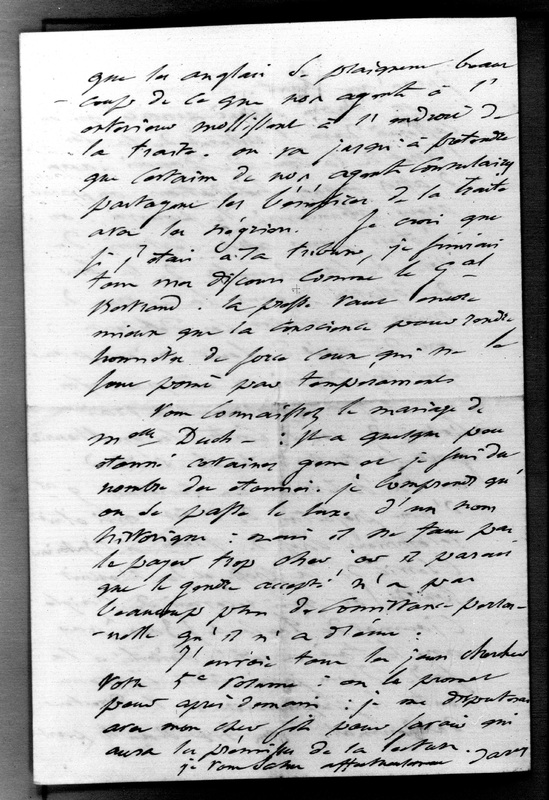 que les anglais se plaignent beau
- coup de ce que nos agents à l'
exterieur mollissent à l'endroit de
la traite. on va jusqu'à pretendre
que certains de nos agents Consulaires
partagent les bénéfices de la traite
avec les négriers. Je crois que
si j'étais à la tribune, je finirais
tous mes discours comme le Gal
Bertrand. la presse vaut encore
mieux que la conscience pour rendre
honnêtes de force ceux qui ne le
sont point par tempéraments
Vous connaissez le mariage de
Melle Duch- : Il a quelque peu
étonné certaines gens et je suis du
nombre des étonnés. je comprends qu'
on se passe le luxe d'un nom
historique : mais il ne faut pas
le payer trop cher, or il parait
que le gendre accepté n'a pas
beaucoup plus de Consistance person-
- nelle qu'il n'a d'écus :
J'envoie tous les jours chercher
votre 5e volume : on le promet
pour après demain : je me disputerai
avec mon cher fils pour savoir qui
aura les prémisses de la lecture.
je vous affectueusement